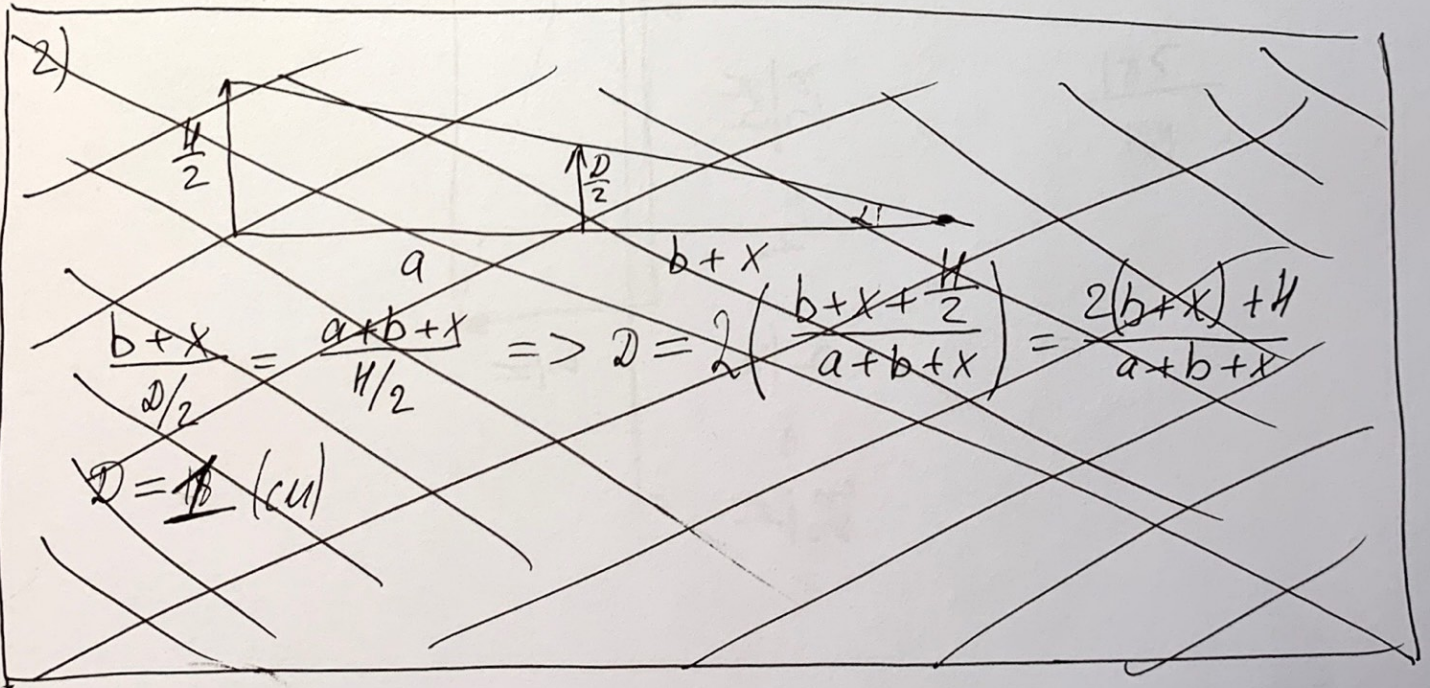 2)
H/2
D/2
α
a
b + x
(b + x)/(D/2) = (a+b+x)/(H/2) => D = 2((b+x+H/2)/(a+b+x)) = (2(b+x)+H)/(a+b+x)
D = (см)